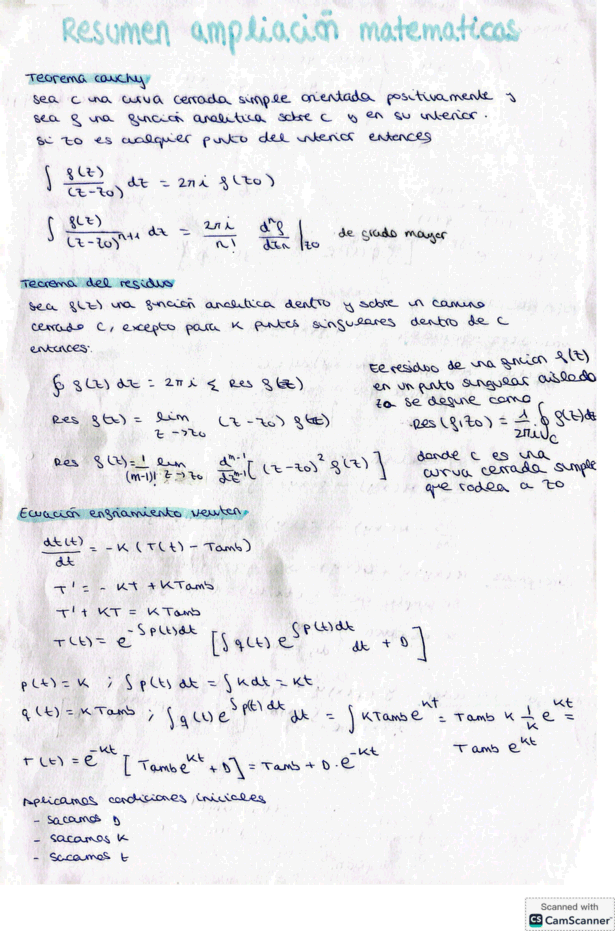 Resumen ampliación matematicas
Teorema cauchy
sea c una curva cerrada simple orientada positivamente y
sea f una función analitica sobre c y en su interior.
si z0 es cualquier punto del interior entonces
∫ f(z)/(z-z0) dz = 2πi f(z0)
∫ f(z)/(z-z0)^(n+1) dz = 2πi/n! d^n f/dzn |z0 de grado mayor
Teorema del residuo
sea f(z) una función analitica dentro y sobre un camino
cerrado C, excepto para K puntos singulares dentro de C
entonces:
∮ f(z) dz = 2πi Σ Res f(z)
Res f(z) = lim z->z0 (z-z0) f(z)
Res f(z) = 1/(m-1)! lim z->z0 d^(m-1)/dz^(m-1) [(z-z0)^2 f(z)]
El residuo de una funcion f(z)
en un punto singular aislado
z0 se define como
Res(f,z0) = 1/2πi ∮C f(z)dz
donde c es una
curva cerrada simple
que rodea a z0
Ecuación enfriamiento newton
dt(t)/dt = -K (T(t) - Tamb)
T' = - KT + KTamb
T' + KT = KTamb
T(t) = e^(-∫p(t)dt) [∫q(t) e^(∫p(t)dt) dt + D]
p(t) = K ; ∫p(t) dt = ∫Kdt = Kt
q(t) = KTamb ; ∫q(t) e^(∫p(t)dt) dt = ∫KTamb e^(Kt) = Tamb K 1/K e^(Kt) =
Tamb e^(Kt)
T(t) = e^(-Kt) [Tamb e^(Kt) + D] = Tamb + D·e^(-Kt)
Aplicamos condiciones iniciales
- sacamos D
- sacamos K
- sacamos t
Scanned with
CS CamScanner